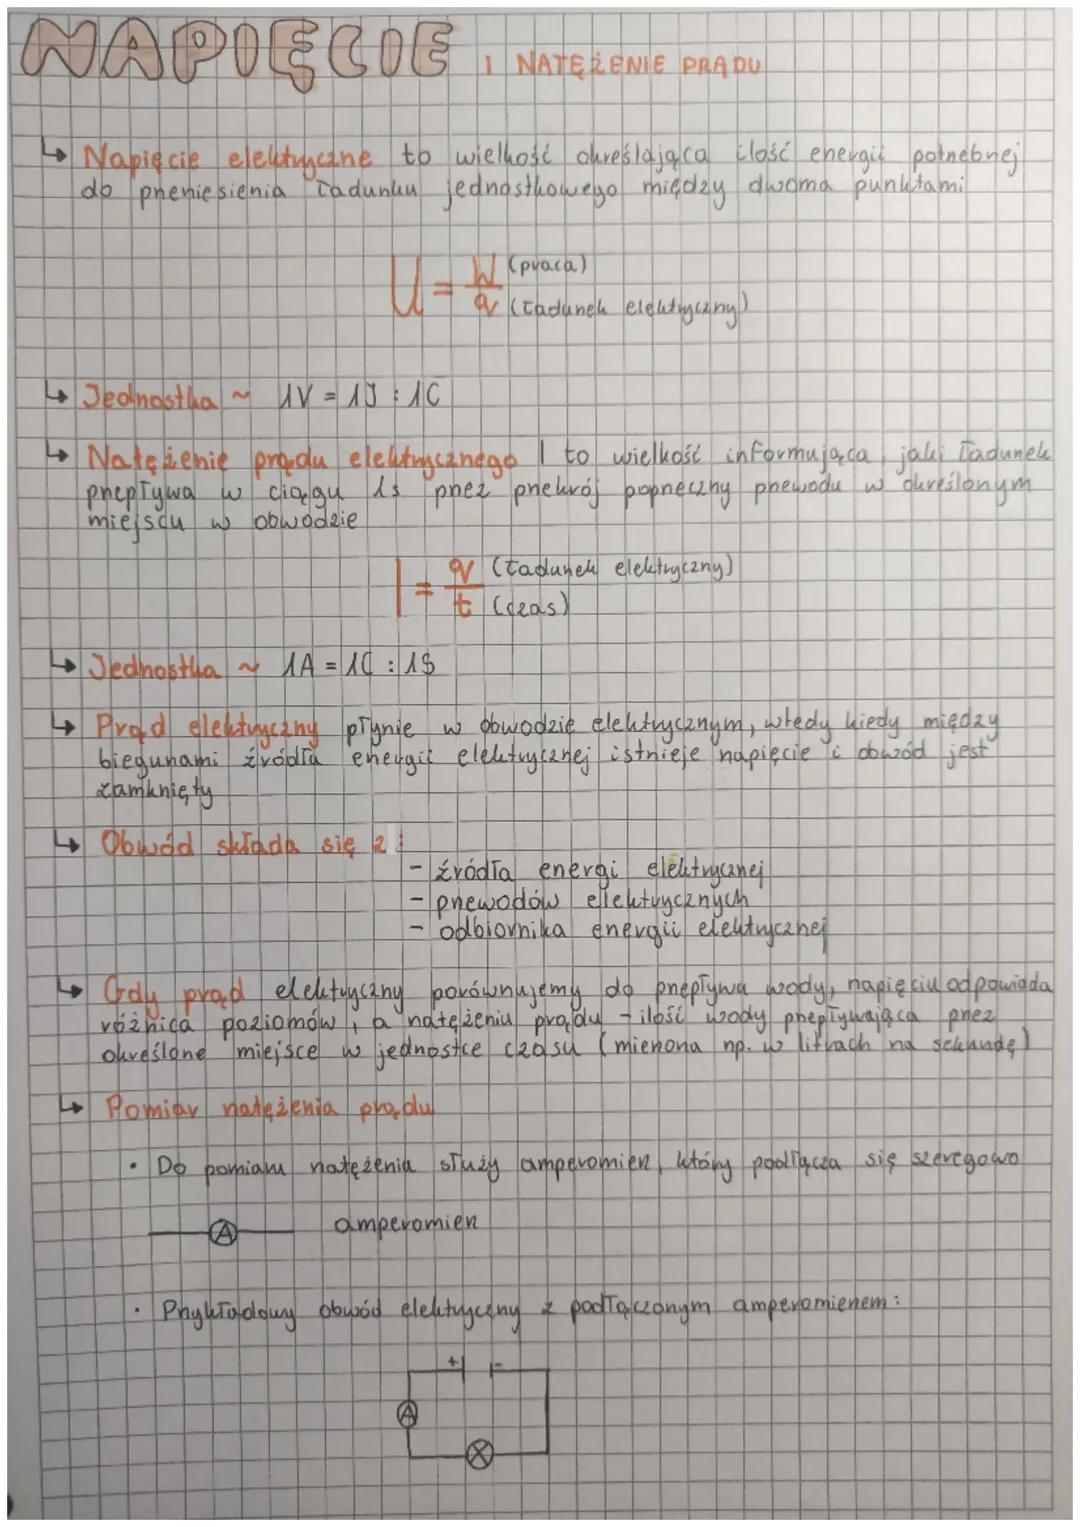 NAPIĘCIE I NATĘŻENIE PRĄDU
↳ Napięcie elektryczne to wielkość określająca ilość energii potrzebnej
do przeniesienia ładunku jednostkowego między dwoma punktami
U = W (praca)
q (ładunek elektryczny)
↳ Jednostka ~ 1V = 1J : 1C
↳ Natężenie prądu elektrycznego I to wielkość informująca, jaki ładunek
przepływa w ciągu 1s przez przekrój poprzeczny przewodu w określonym
miejscu w obwodzie
I = q (ładunek elektryczny)
t (czas)
↳ Jednostka ~ 1A = 1C : 1S
↳ Prąd elektryczny płynie w obwodzie elektrycznym, wtedy kiedy między
biegunami źródła energii elektrycznej istnieje napięcie i obwód jest
zamknięty
↳ Obwód składa się z :
- źródła energi elektrycznej
- przewodów elektrycznych
- odbiornika energii elektrycznej
↳ Gdy prąd elektryczny porównujemy do przepływu wody, napięciu odpowiada
różnica poziomów, a natężeniu prądu - ilość wody przepływająca przez
określone miejsce w jednostce czasu (mierzona np. w litrach na sekundę)
↳ Pomiar natężenia prądu
• Do pomiaru natężenia służy amperomierz, który podłącza się szeregowo
A amperomierz
• Przykładowy obwód elektryczny z podłączonym amperomierzem:
+ -
A